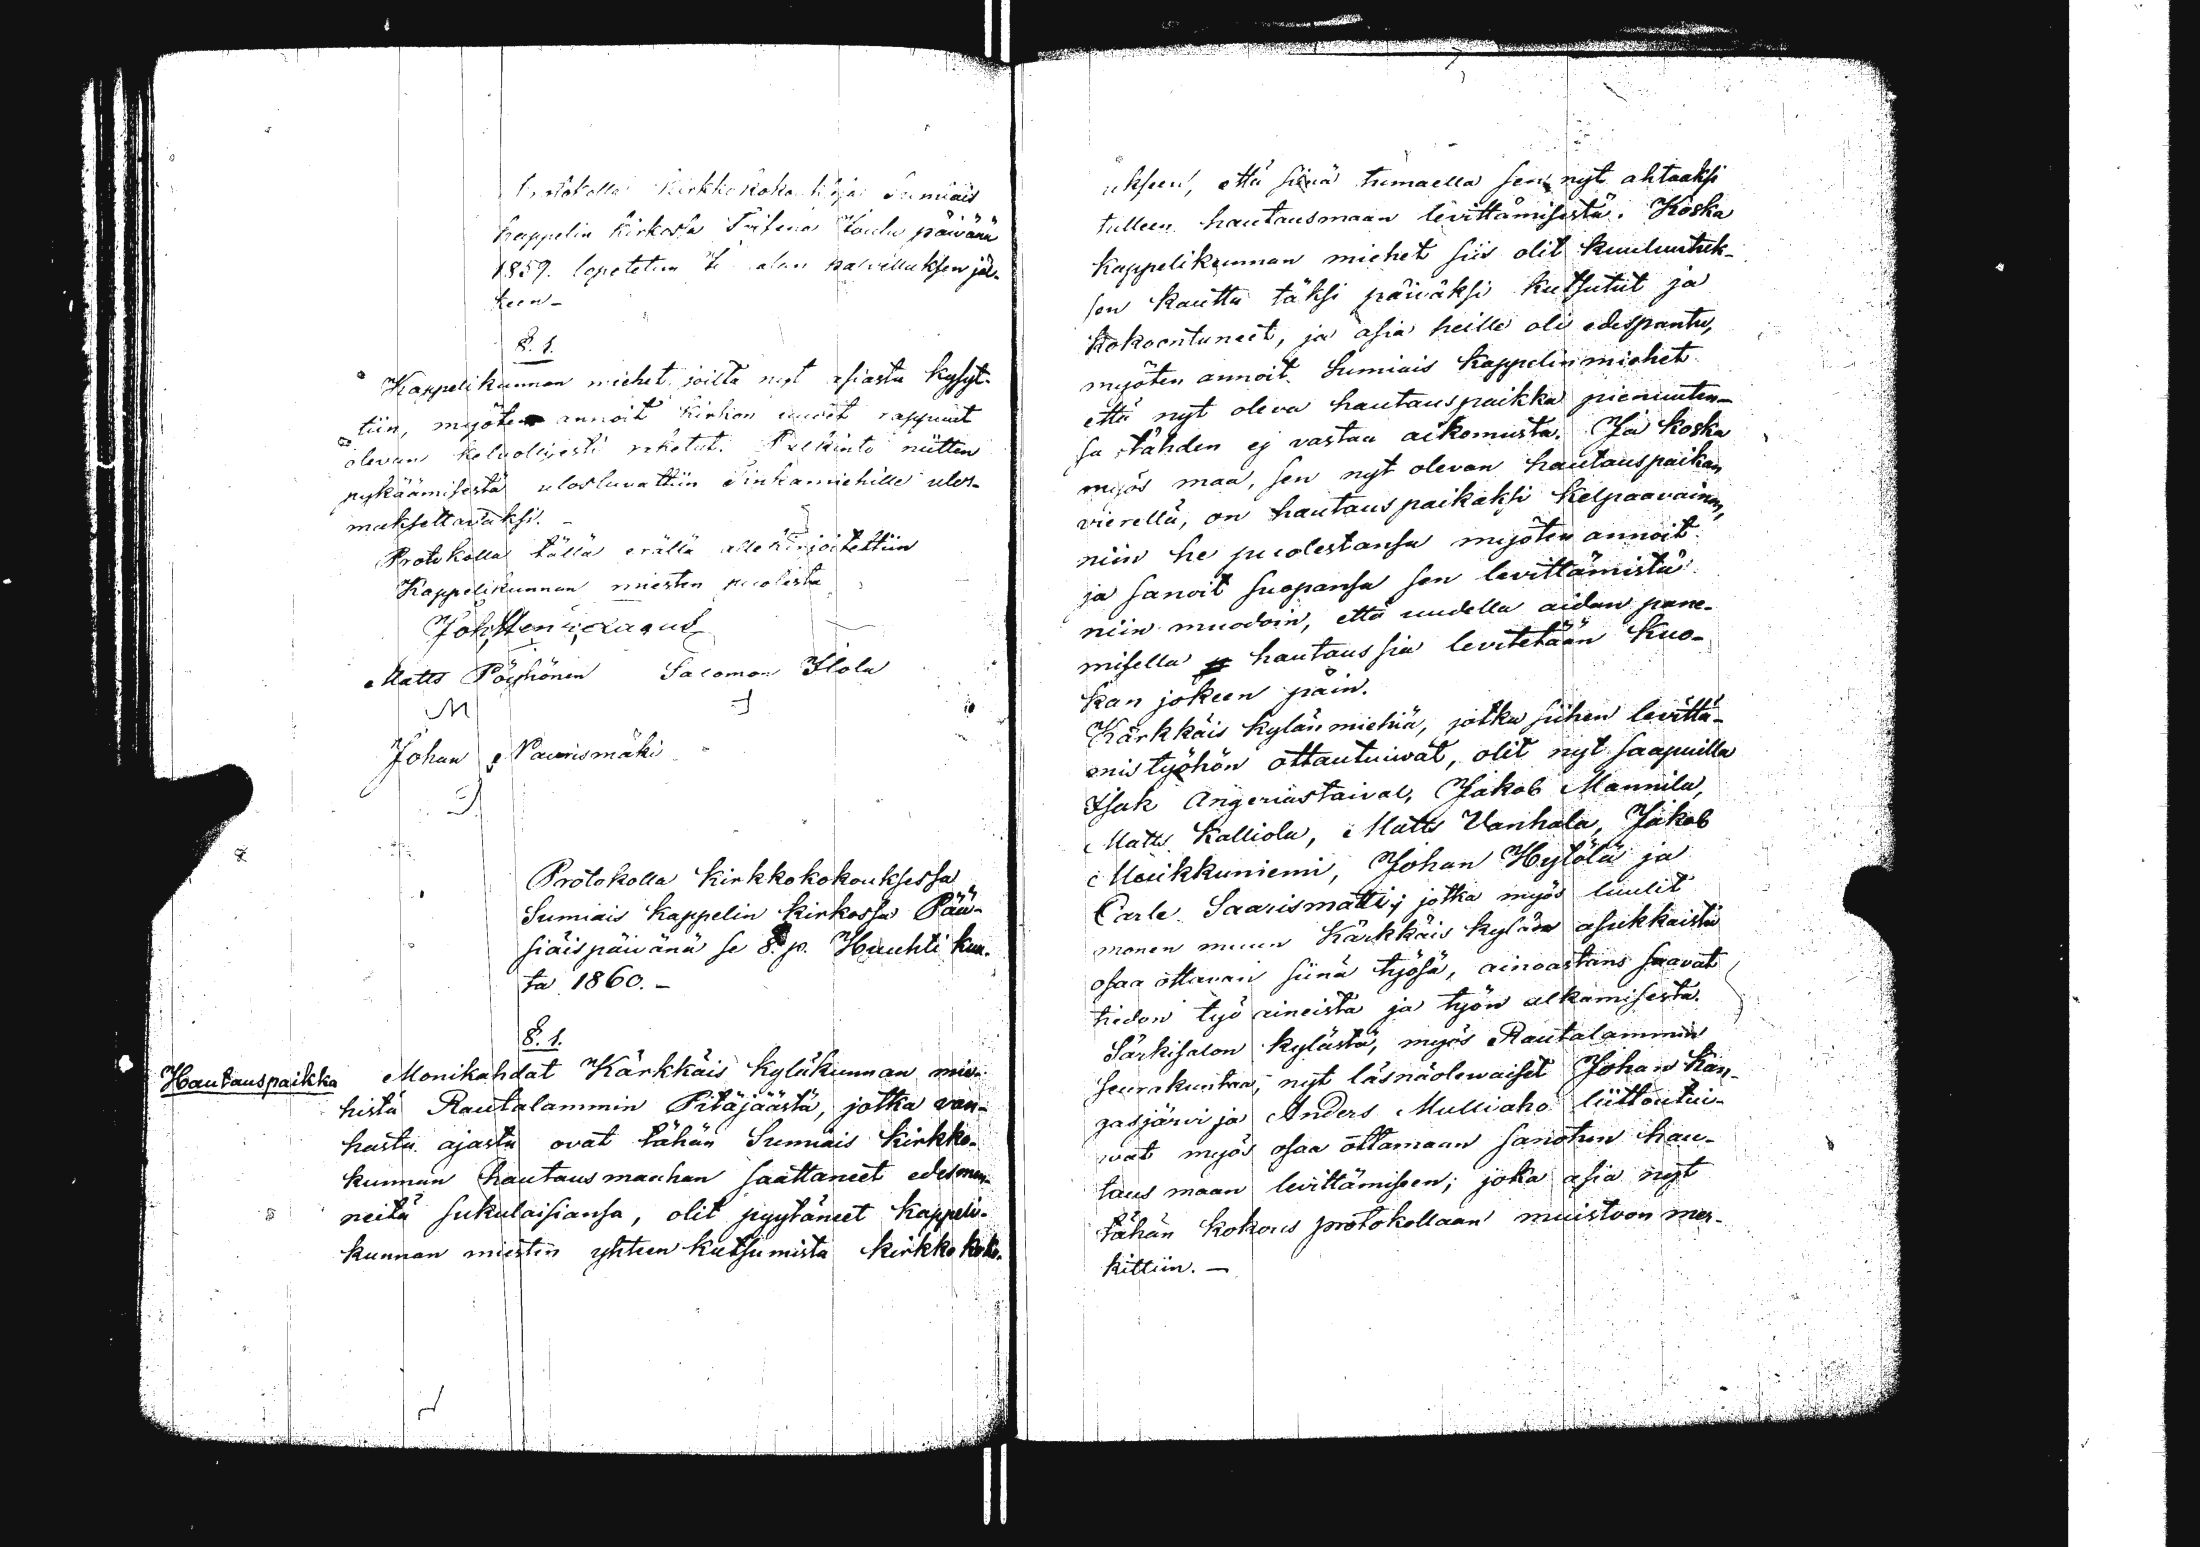 Protokolla Kirkkokokouksesa Sumiais
kappelin kirkosa Joulu päivänä
1859. lopetetun Jumalan palvelluksen jäl-
keen-
§. 1.
Kappelikunnan miehet joilta nyt asiasta kysyt-
tiin, myöten annoit kirkon uuvet rappuut
olevan kelvollisesti rakettut. Palkinto niitten
pykäämisestä ulosluvattiin urakamiehille ulos-
maksettavaksi. -
Protokolla tällä erällä allekirjoitettiin
Kappelikunnan miesten puolesta
Joh. Sten: Lagus
Matts Pöyhönen Salomon Ilola
Johan Naurismäki
Protokolla Kirkkokokouksessa
Sumiais kappelin kirkossa Pää-
siäispäivänä se 8. p. Huuhti kuu-
ta 1860. -
§. 1.
Hautauspaikka Monikahdat Kärkkäis kyläkunnan mie-
histä Rautalammin Pitäjäästä, jotka van-
hasta ajasta ovat tähän Sumiais kirkko-
kunnan hautausmaahan saattaneet edesmen-
neitä sukulaisiansa, olit pyytäneet kappeli-
kunnan miesten yhteen kutsumista kirkko koko-
ukseen, että siinä tumaella sen nyt ahtaaksi
tulleen hautausmaan levittämisestä. Koska
kappelikunnan miehet siis olit kuuluutuk-
sen kautta täksi päiväksi kutsutut ja
kokoontuneet, ja asia heille oli edespantu,
myöten annoit Sumiais kappelin miehet
että nyt oleva hautauspaikka pienuuten-
sa tähden ej vastaa aikomusta. Ja koska
myös maa, sen nyt olevan hautauspaikan
vierellä, on hautauspaikaksi kelpaavainen,
niin he puolestansa myöten annoit
ja sanoit suopansa sen levittämistä
niin muodoin, että uudella aidan pane-
misella hautaussia levitetään Kuo-
kan jokeen päin.
Kärkkäis kylän miehiä, jotka siihen levittä-
mis työhön ottautuivat, olit nyt saapuilla
Isak Angeriastaival, Jakob Mannila,
Matts Kalliola, Matts Vanhala, Jakob
Muikkuniemi, Johan Hytölä ja
Carle Saarismatti; jotka myös luulit
monen muun Kärkkäis kylään asukkaista
osaa ottavan siinä työsä, ainoastans saavat
tiedon työ aineista ja työn alkamisesta.
Särkisalon kylästä, myös Rautalammin
seurakuntaa, nyt läsnäolevaiset Johan Kan-
gasjärvi ja Anders Mulliaho liittoutui-
vat myös osaa ottamaan sanotun hau-
taus maan levittämiseen; joka asia nyt
tähän kokous protokollaan muistoon mer-
kittiin. -